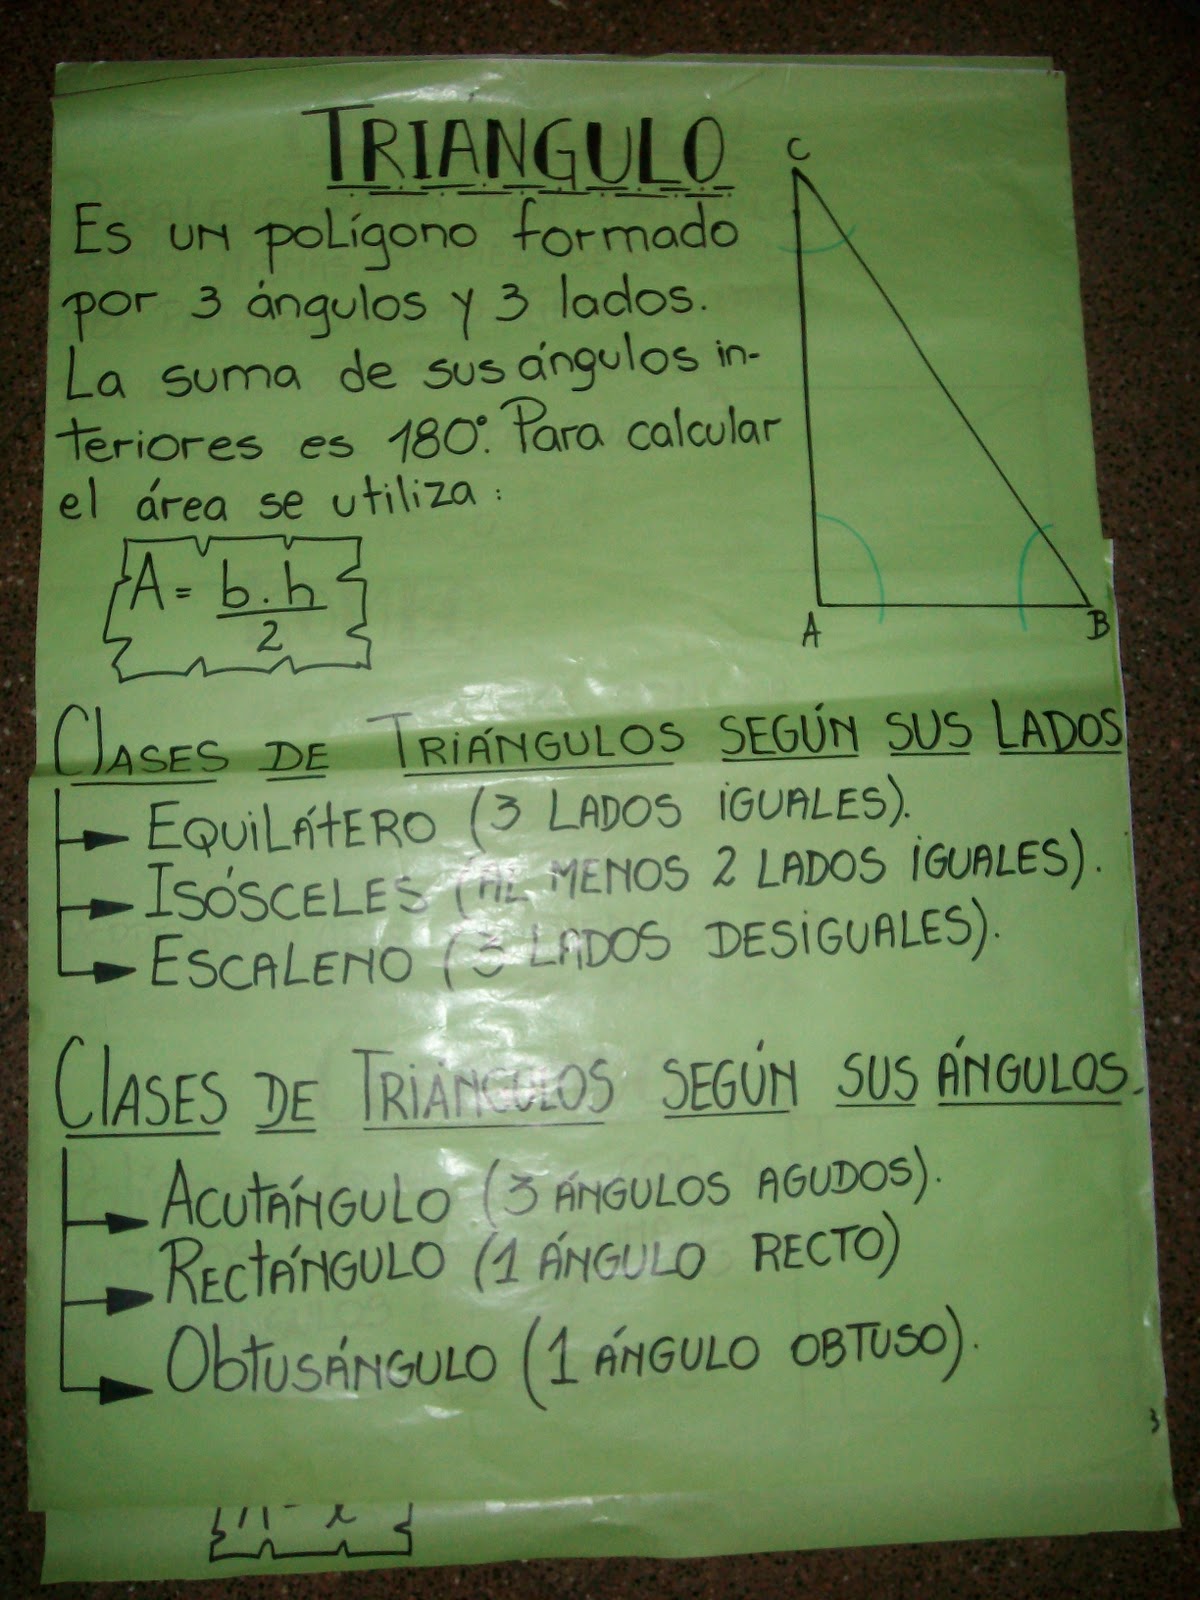 TRIÁNGULO
Es un polígono formado
por 3 ángulos y 3 lados.
La suma de sus ángulos in-
teriores es 180°. Para calcular
el área se utiliza:
A = b.h
2
C
A
B
CLASES DE TRIÁNGULOS SEGÚN SUS LADOS
EQUILÁTERO (3 LADOS IGUALES).
ISÓSCELES (AL MENOS 2 LADOS IGUALES).
ESCALENO (3 LADOS DESIGUALES).
CLASES DE TRIÁNGULOS SEGÚN SUS ÁNGULOS.
ACUTÁNGULO (3 ÁNGULOS AGUDOS).
RECTÁNGULO (1 ÁNGULO RECTO)
OBTUSÁNGULO (1 ÁNGULO OBTUSO).
3